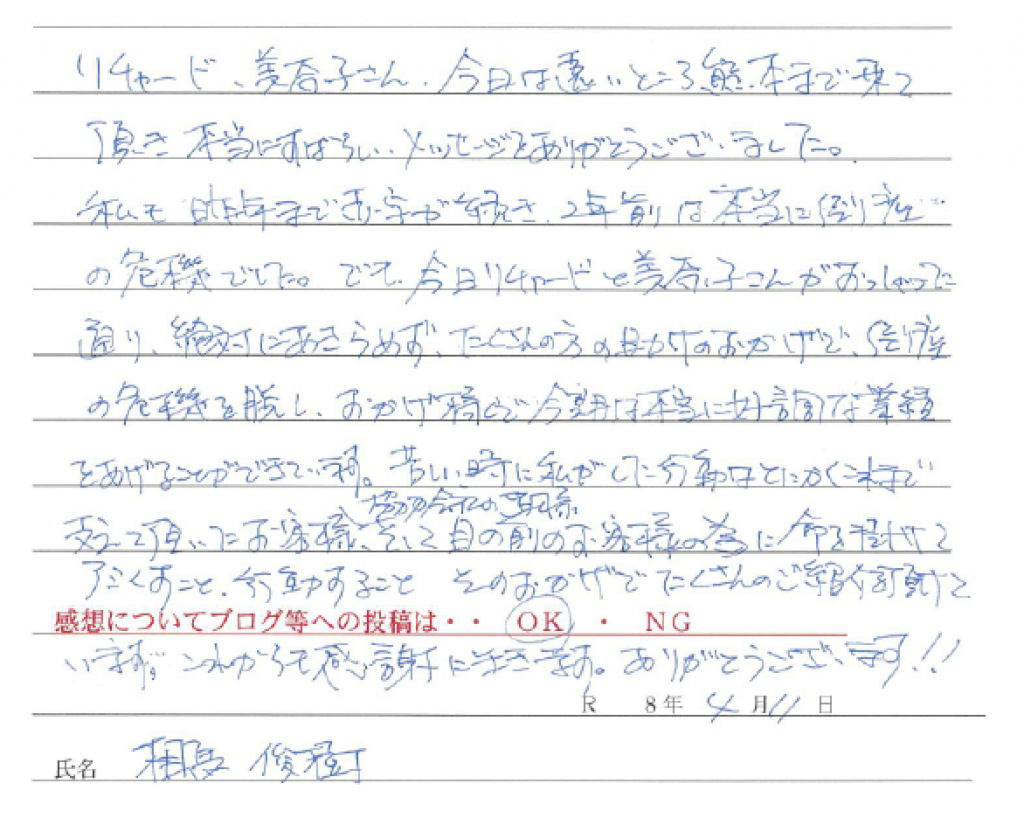 リチャード、美奈子さん、今日は遠いところ熊本まで来て
頂き本当にすばらしいメッセージをありがとうございました。
私も昨年まで赤字が続き、2年前は本当に倒産
の危機でした。でも、今日リチャードと美奈子さんがおっしゃってた
通り、絶対にあきらめず、たくさんの方の助けのおかげで、倒産
の危機を脱し、おかげ様で今期は本当に好調な業績
をあげることができています。苦しい時に私がした行動はとにかくこれまで
協力会社の皆様
支えて頂いたお客様、そして目の前のお客様の為に命を掛けて
尽くすこと、行動すること そのおかげでたくさんのご紹介頂けて
感想についてブログ等への投稿は・・ OK ・ NG
います。これからも感謝に生きます。ありがとうございます!!
R 8年 4月11日
氏名 相馬 俊樹